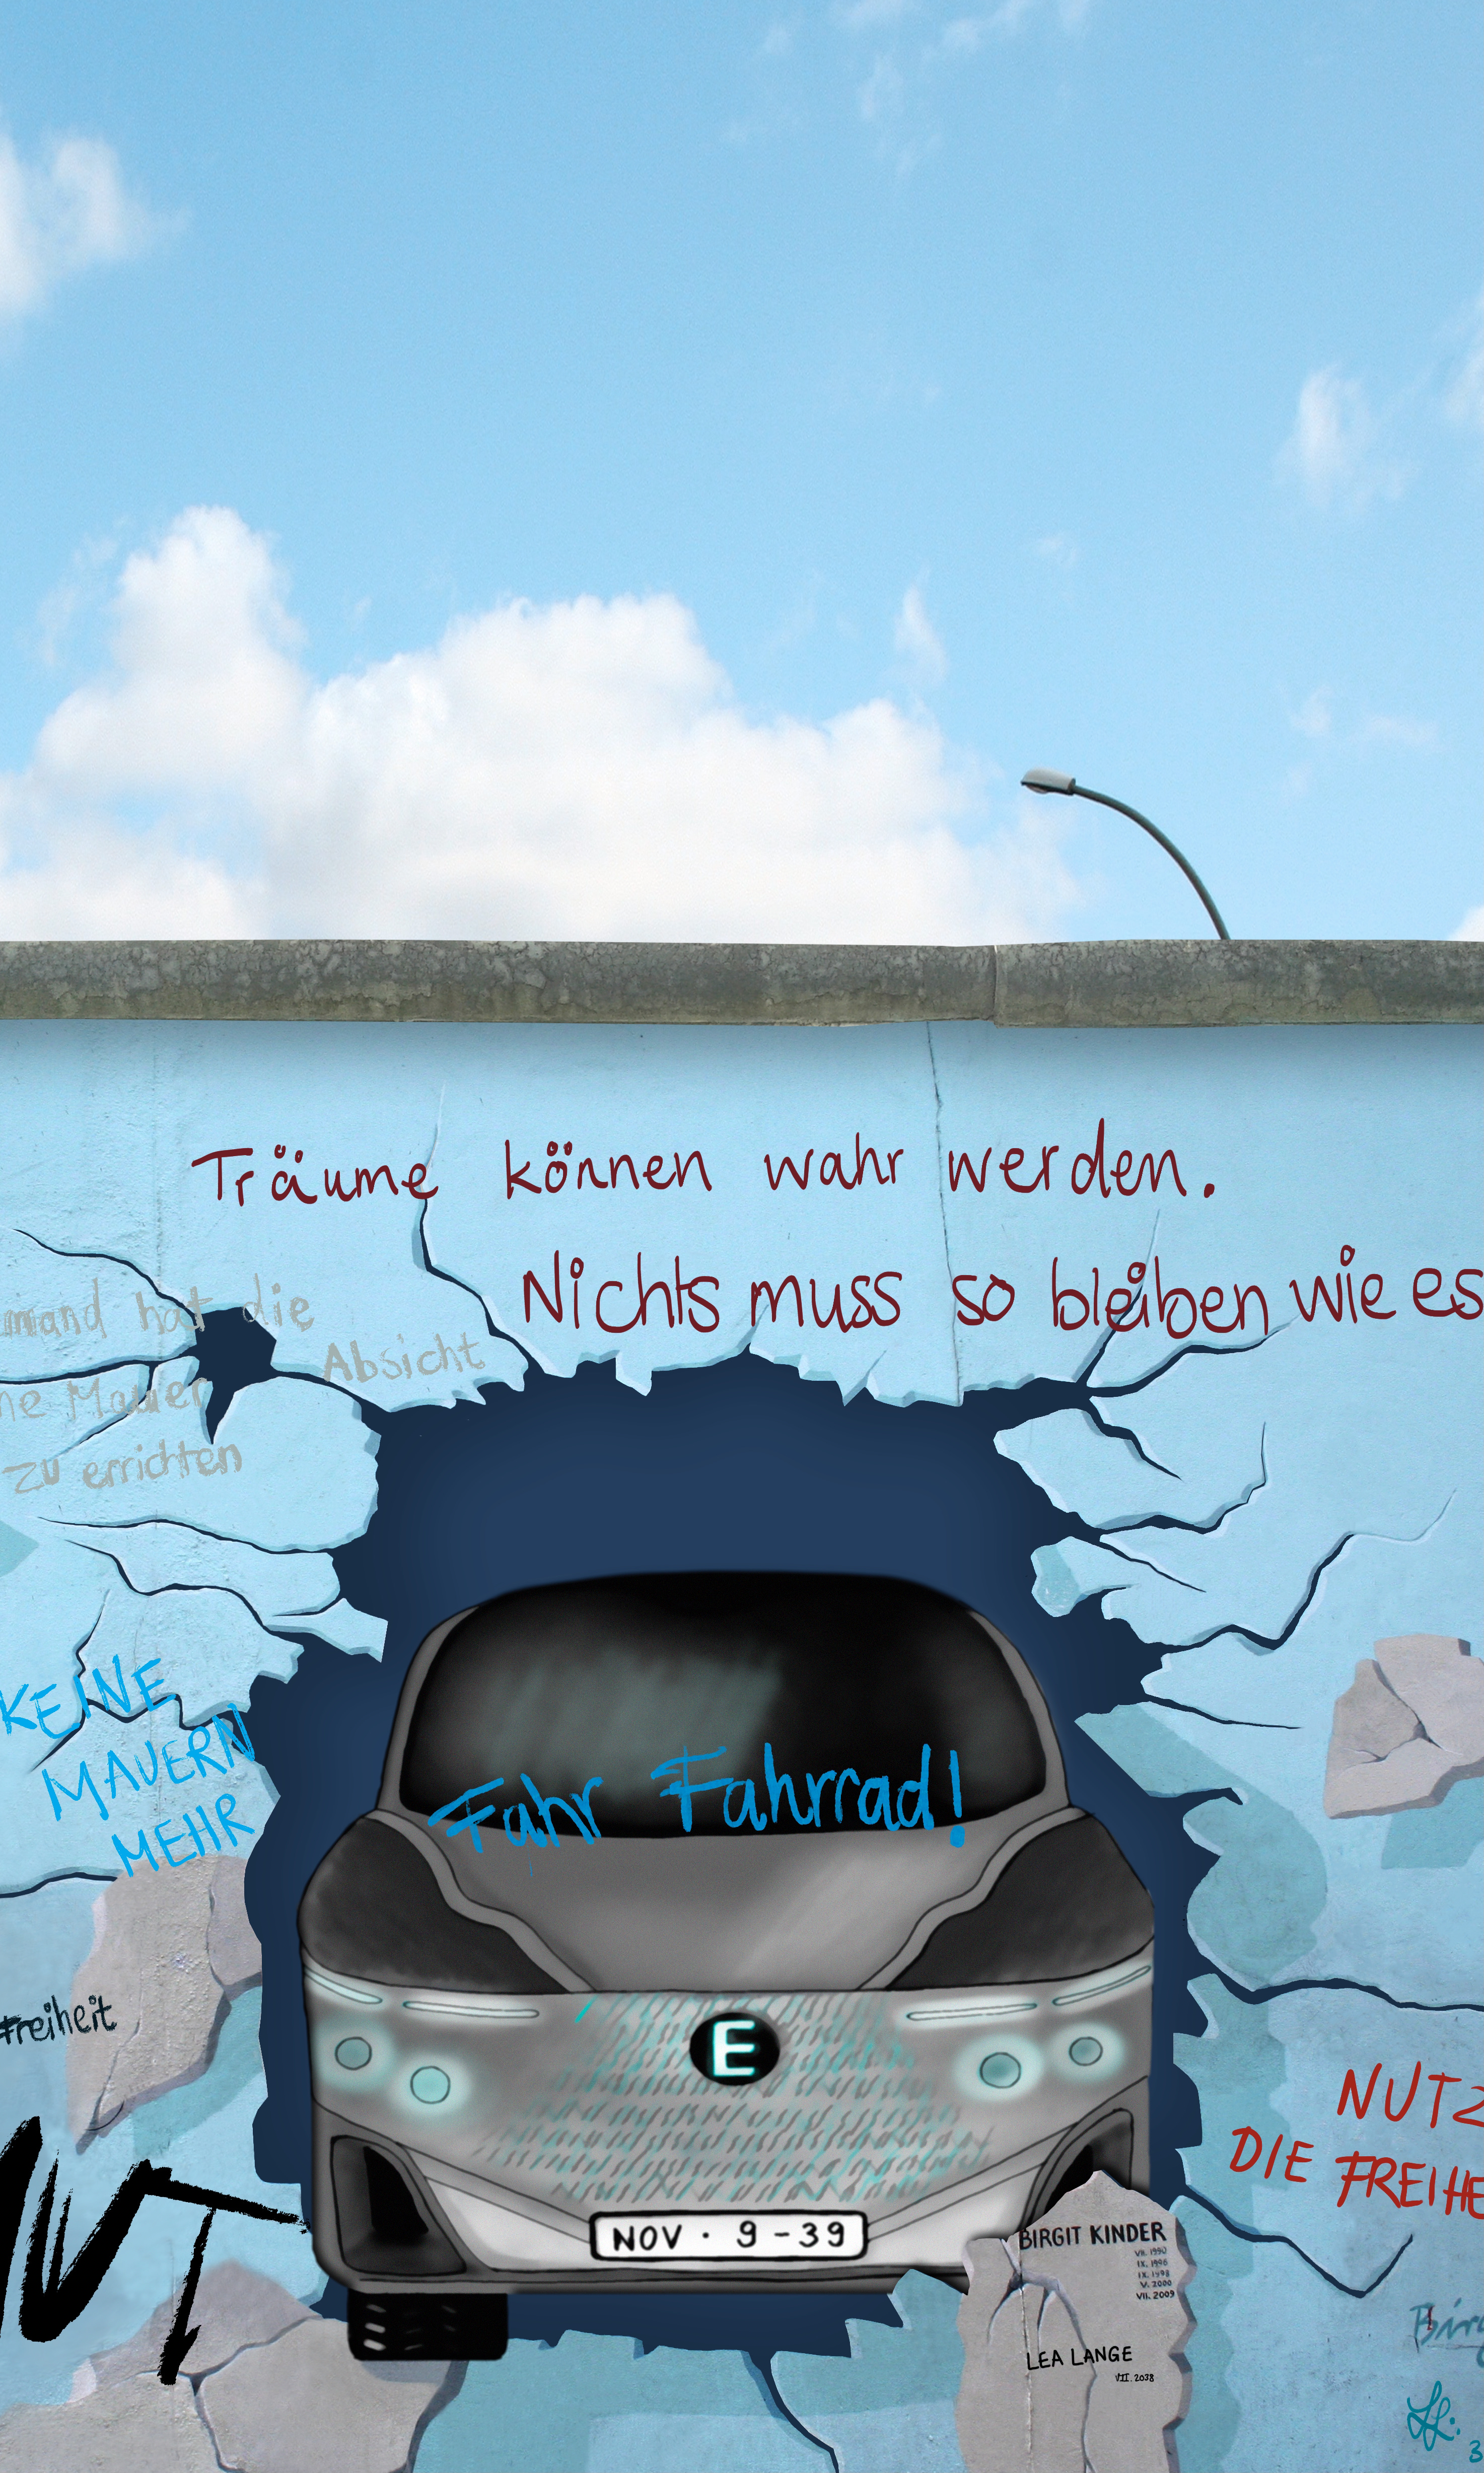 Träume können wahr werden.
Nichts muss so bleiben wie es
hat die
Absicht
Mauer
zu errichten
KEINE
MAUERN
MEHR
Fahr Fahrrad!
Freiheit
E
NUTZ
DIE FREIHE
MUT
NOV · 9-39
BIRGIT KINDER
VII. 1990
IX. 1996
IX. 1998
V. 2000
VII. 2009
LEA LANGE
VII. 2038
LL.